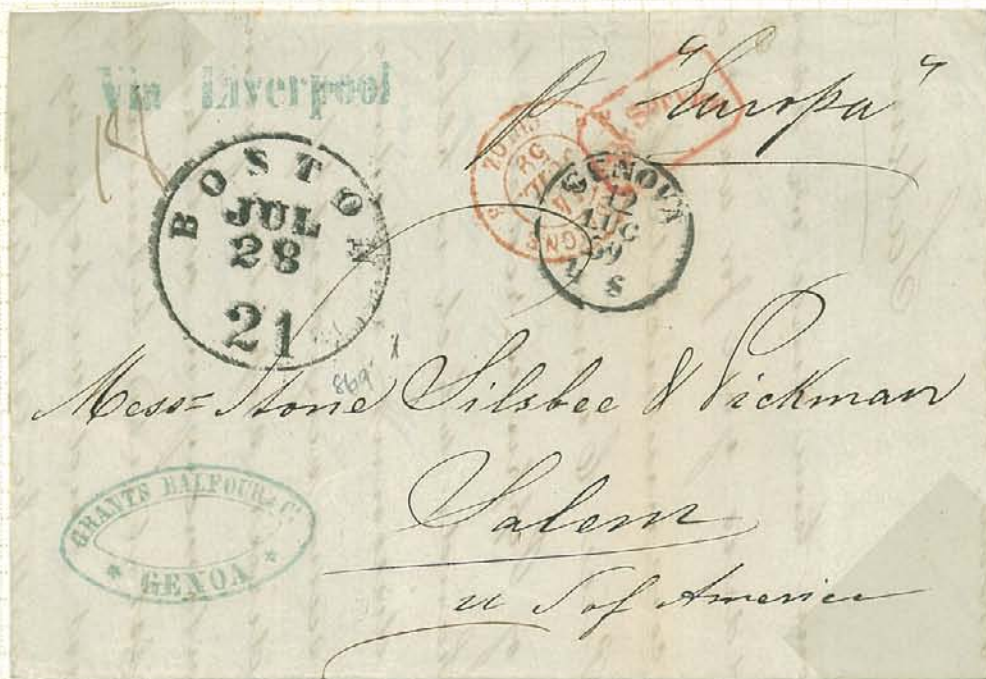 Via Liverpool
p "Europa"
BOSTON
JUL
28
21
GENOVA
12
LUG
59
8 S
869
Mess= Stone Silsbee & Pickman
Salem
U S of America
GRANTS BALFOUR & Co
* GENOA *